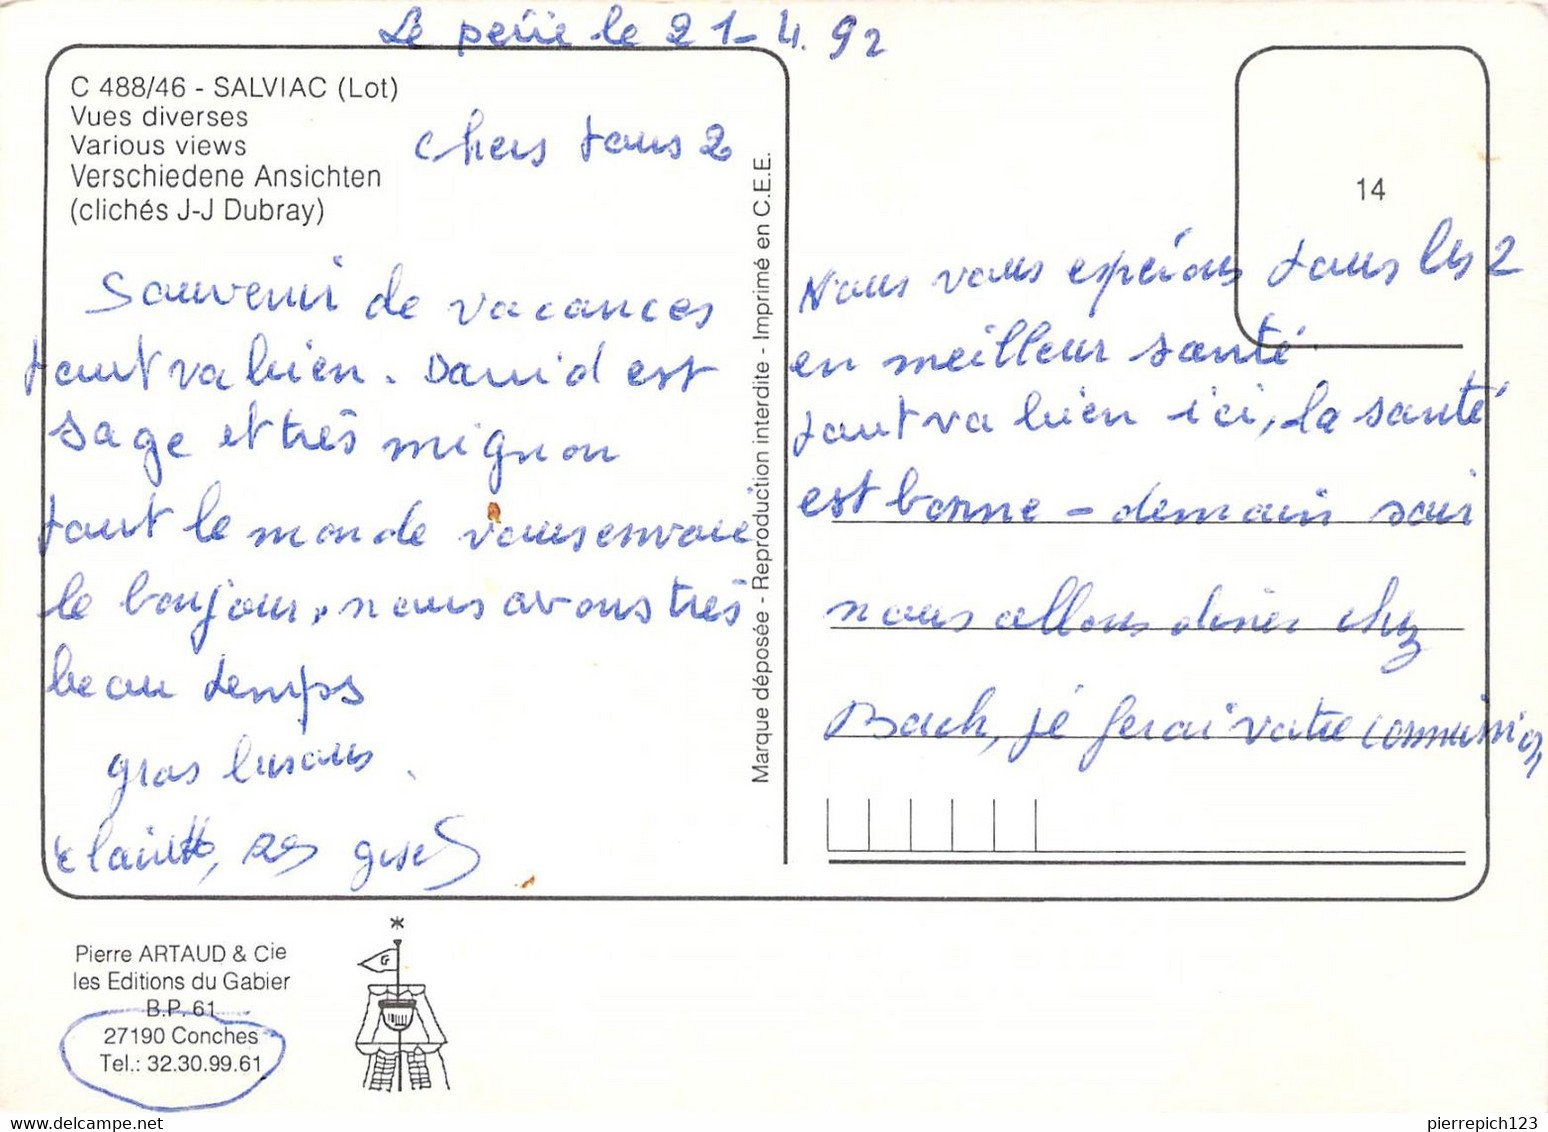 le 21-4.92
C 488/46 - SALVIAC (Lot)
Vues diverses
Various views
Verschiedene Ansichten
(clichés J-J Dubray)
chers tous 2
Souvenir de vacances
tout va bien. David est
sage et très mignon
tout le monde vous envoie
le bonjour, nous avons très
beau temps
gros bisous.
Marque déposée - Reproduction interdite - Imprimé en C.E.E.
14
Nous vous espérons tous les 2
en meilleur santé.
tout va bien ici, la santé
est bonne - demain soir
nous allons diner chez
Bach, je ferai votre commission
Pierre ARTAUD & Cie
les Editions du Gabier
B.P. 61
27190 Conches
Tel.: 32.30.99.61
G
pierrepich123